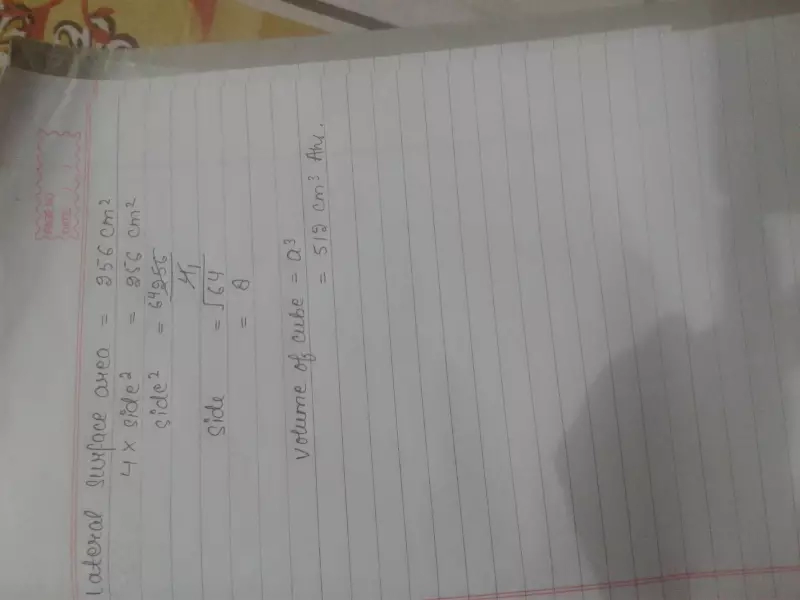 PAGE NO
DATE
Lateral surface area = 256 cm²
4 × side² = 256 cm²
side² = 64 256
4 1
side = √64
= 8
Volume of cube = a³
= 512 cm³ Ans.